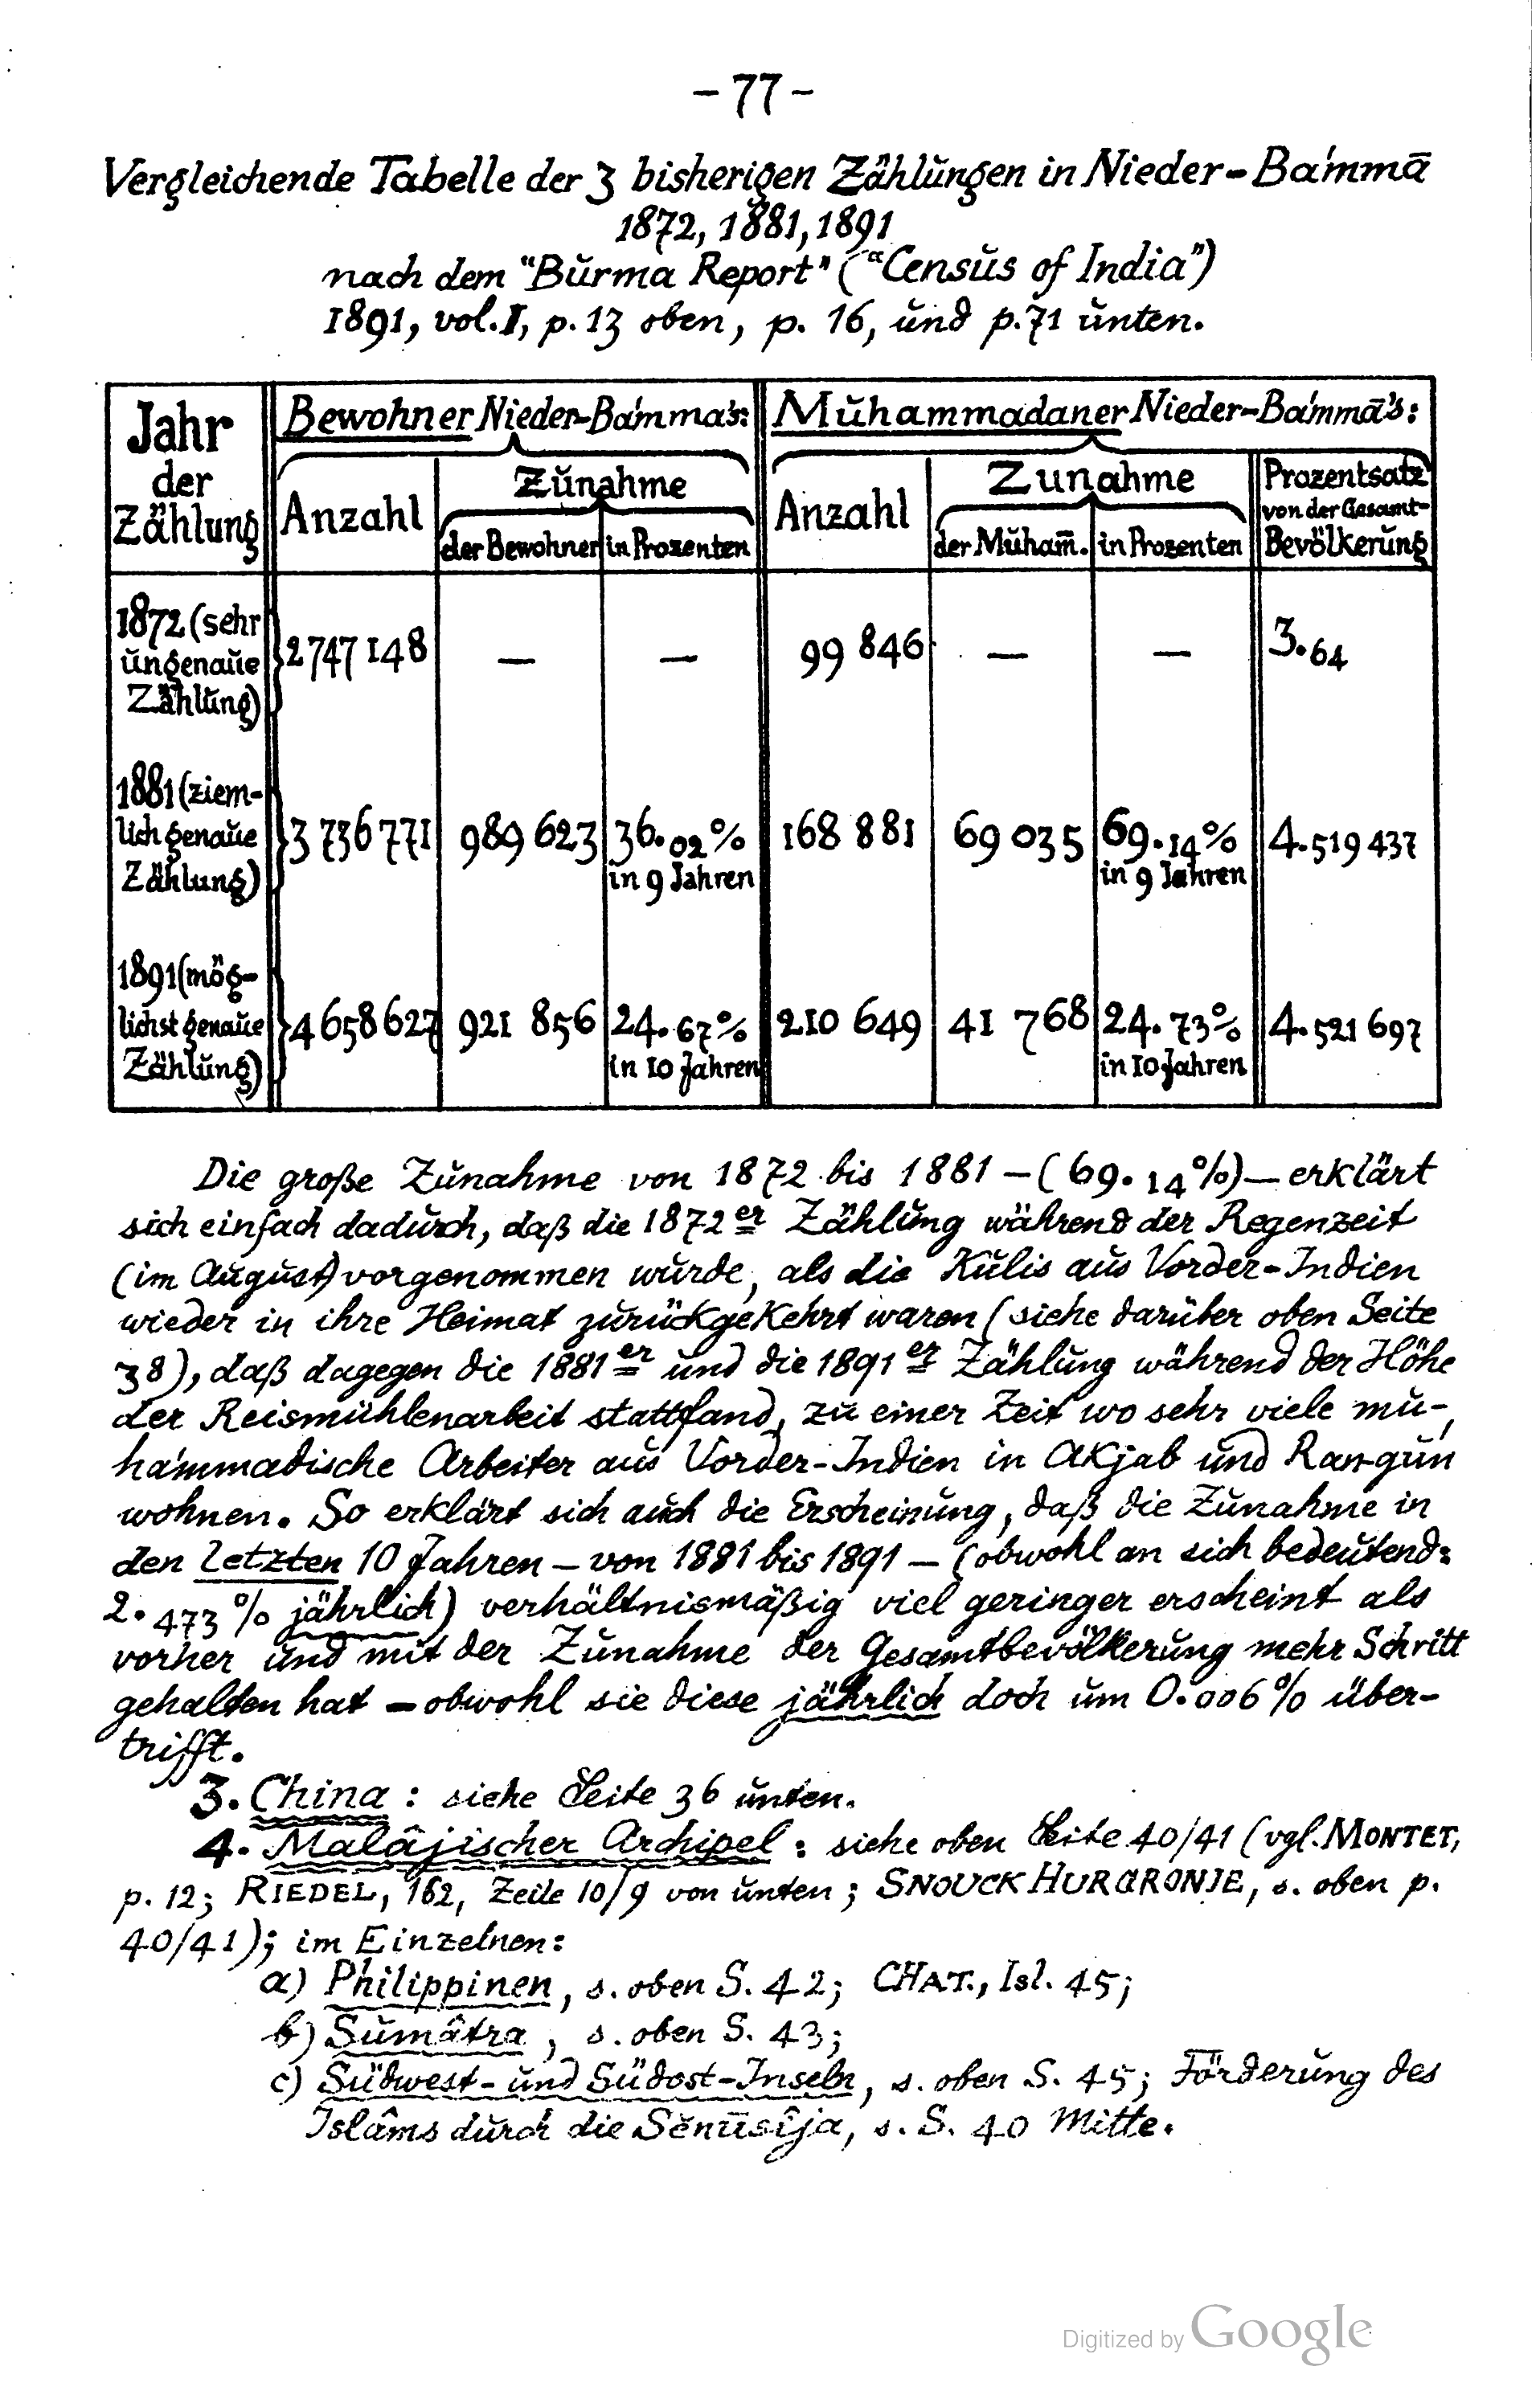 -77-
Vergleichende Tabelle der 3 bisherigen Zählŭngen in Nieder-Bámmā
1872, 1881, 1891
nach dem "Bŭrma Report" ("Censŭs of India")
1891, vol. I, p. 13 oben, p. 16, ŭnd p. 71 ŭnten.
Jahr der Zählŭng
Bewohner Nieder-Bámma's:
Mŭhammadaner Nieder-Bámmā's:
Anzahl
Zŭnahme
der Bewohner
in Prozenten
Anzahl
Zunahme
der Mŭham̄.
in Prozenten
Prozentsatz
von der Gesamt-
Bevölkerŭng
1872 (sehr
ŭngenaŭe
Zählŭng)
2 747 148 — — 99 846 — — 3.64
1881 (ziem-
lich genaŭe
Zählung)
3 736 771 989 623 36.02% in 9 Jahren 168 881 69 035 69.14% in 9 Jahren 4.519 437
1891 (mög-
lichst genaŭe
Zählŭng)
4 658 627 921 856 24.67% in 10 Jahren 210 649 41 768 24.73% in 10 Jahren 4.521 697
Die große Zŭnahme von 1872 bis 1881 — (69.14%) — erklärt
sich einfach dadŭrch, daß die 1872er Zählŭng während der Regenzeit
(im Aŭgŭst) vorgenommen wŭrde, als die Kŭlis aŭs Vorder-Indien
wieder in ihre Heimat zŭrückgekehrt waren (siehe darüber oben Seite
38), daß dagegen die 1881er und die 1891er Zählŭng während der Höhe
der Reismühlenarbeit stattfand, zŭ einer Zeit wo sehr viele mŭ-
hámmadische Arbeiter aŭs Vorder-Indien in Akjab ŭnd Ran-gŭn
wohnen. So erklärt sich aŭch die Erscheinŭng, daß die Zŭnahme in
den letzten 10 Jahren — von 1881 bis 1891 — (obwohl an sich bedeŭtend:
2.473% jährlich) verhältnismäßig viel geringer erscheint als
vorher ŭnd mit der Zŭnahme der Gesamtbevölkerŭng mehr Schritt
gehalten hat — obwohl sie diese jährlich doch ŭm 0.006% über-
trifft.
3. China: siehe Seite 36 ŭnten.
4. Malâjischer Archipel: siehe oben Seite 40/41 (vgl. MONTET,
p. 12; RIEDEL, 162, Zeile 10/9 von ŭnten; SNOUCK HURGRONJE, s. oben p.
40/41); im Einzelnen:
a) Philippinen, s. oben S. 42; CHAT., Isl. 45;
b) Sŭmâtra, s. oben S. 43;
c) Südwest- ŭnd Südost-Inseln, s. oben S. 45; Förderŭng des
Islâms dŭrch die Senūsîja, s. S. 40 Mitte.
Digitized by Google